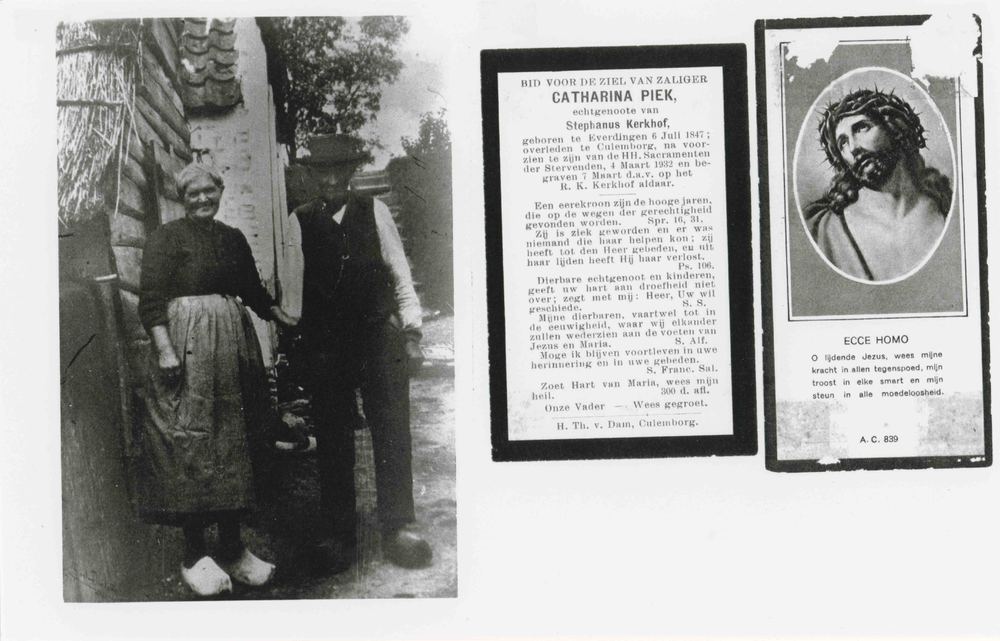 BID VOOR DE ZIEL VAN ZALIGER
CATHARINA PIEK,
echtgenoote van
Stephanus Kerkhof,
geboren te Everdingen 6 Juli 1847;
overleden te Culemborg, na voor-
zien te zijn van de HH. Sacramenten
der Stervenden, 4 Maart 1932 en be-
graven 7 Maart d.a.v. op het
R. K. Kerkhof aldaar.
Een eerekroon zijn de hooge jaren,
die op de wegen der gerechtigheid
gevonden worden. Spr. 16, 31.
Zij is ziek geworden en er was
niemand die haar helpen kon; zij
heeft tot den Heer gebeden, en uit
haar lijden heeft Hij haar verlost.
Ps. 106.
Dierbare echtgenoot en kinderen,
geeft uw hart aan droefheid niet
over; zegt met mij: Heer, Uw wil
geschiede. S. S.
Mijne dierbaren, vaartwel tot in
de eeuwigheid, waar wij elkander
zullen wederzien aan de voeten van
Jezus en Maria. S. Alf.
Moge ik blijven voortleven in uwe
herinnering en in uwe gebeden.
S. Franc. Sal.
Zoet Hart van Maria, wees mijn
heil. 300 d. afl.
Onze Vader — Wees gegroet.
H. Th. v. Dam, Culemborg.
ECCE HOMO
O lijdende Jezus, wees mijne
kracht in allen tegenspoed, mijn
troost in elke smart en mijn
steun in alle moedeloosheid.
A. C. 839